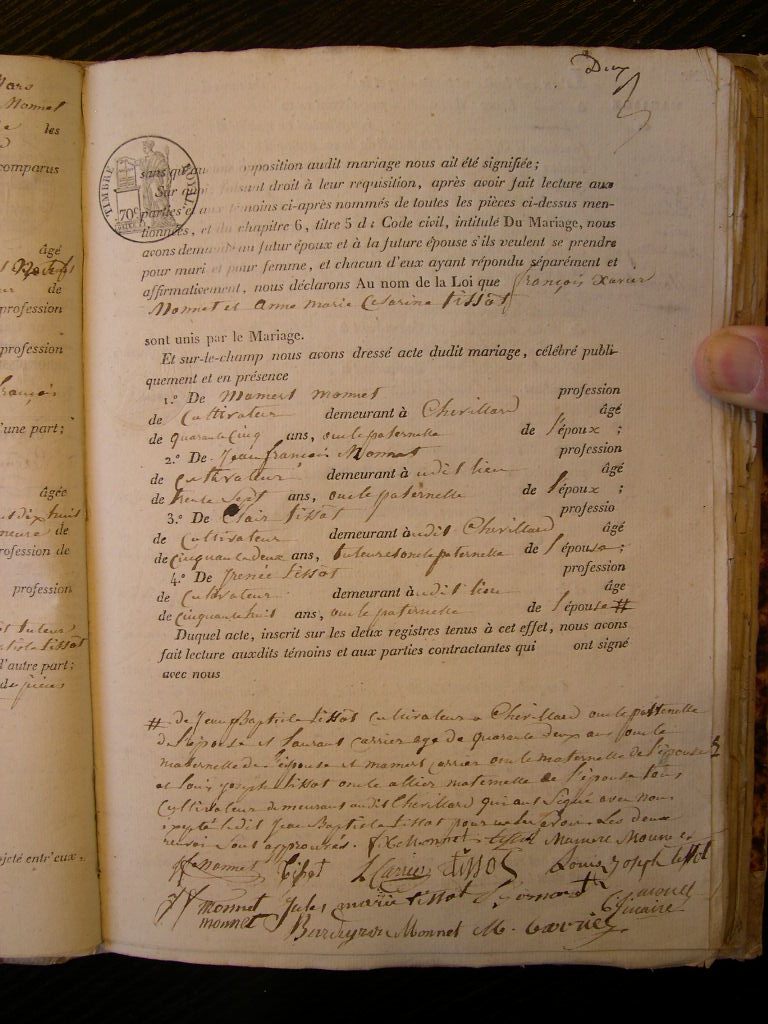 Mars
Monnet
les
comparus
âgé
de
profession
profession
françois
d'une part;
âgée
dix huit
de
profession de
profession
tuteur
tissot
d'autre part;
pièces
jeté entr'eux
Deux
TIMBRE ROYAL
70c
sans qu'aucune opposition audit mariage nous ait été signifiée;
Sur quoi, faisant droit à leur réquisition, après avoir fait lecture aux
parties et aux témoins ci-après nommés de toutes les pièces ci-dessus men-
tionnées, et du chapitre 6, titre 5 du Code civil, intitulé Du Mariage, nous
avons demandé au futur époux et à la future épouse s'ils veulent se prendre
pour mari et pour femme, et chacun d'eux ayant répondu séparément et
affirmativement, nous déclarons Au nom de la Loi que françois Xavier
Monnet et anne marie Cesarine tissot
sont unis par le Mariage.
Et sur-le-champ nous avons dressé acte dudit mariage, célébré publi-
quement et en présence
1.° De Mamert monnet profession
de Cultivateur demeurant à Chevillard âgé
de quarante cinq ans, oncle paternelle de l'époux ;
2.° De Jean françois Monnet profession
de cultivateur demeurant à audit lieu âgé
de trente sept ans, oncle paternelle de l'époux ;
3.° De Clair tissot professio
de Cultivateur demeurant à audit Chevillard âgé
de cinquante deux ans, tuteur et oncle paternelle de l'épouse ;
4.° De Irenée tissot profession
de Cultivateur demeurant à audit lieu âge
de cinquante huit ans, oncle paternelle de l'épouse #
Duquel acte, inscrit sur les deux registres tenus à cet effet, nous avons
fait lecture auxdits témoins et aux parties contractantes qui ont signé
avec nous
# de Jean Baptiste tissot cultivateur a Chevillard oncle paternelle
de l'épouse et Laurant carrier age de quarante deux ans oncle
maternelle de l'épouse et mamert carrier oncle maternelle de l'épouse
et Louis joseph tissot oncle allier maternelle de l'épouse tous
Cultivateur demeurant audit Chevillard qui ont Signé avec nous
excepté ledit Jean Baptiste tissot pour ne le savoir. Les deux
renvoi Sont approuvés. fx Monnet tissot Mamert Monnet
Monnet tissot L Carrier tissot Louis Joseph tissot
monnet Jules marie tissot
monnet Monnet M. Carrier